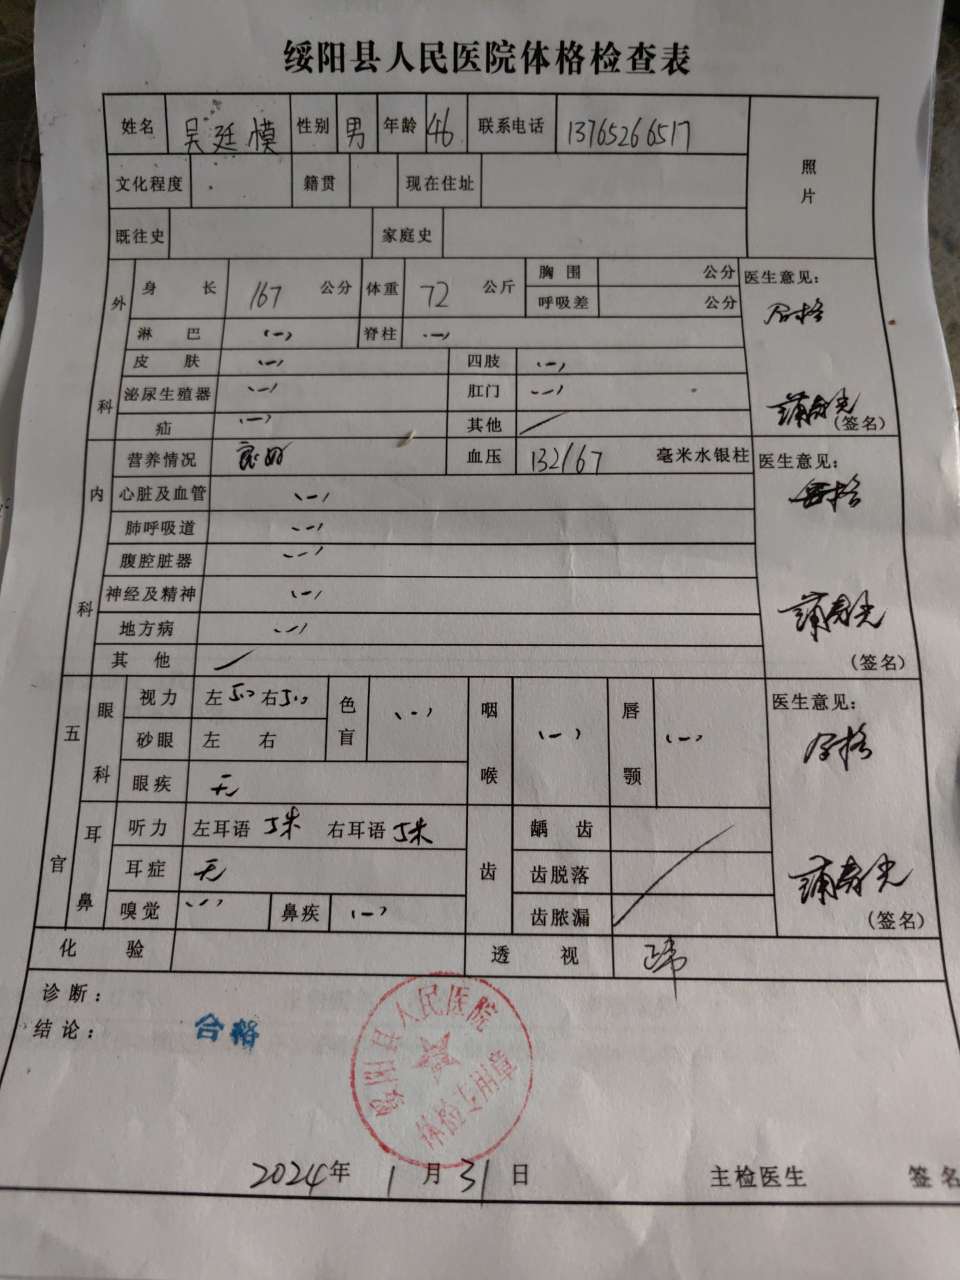 绥阳县人民医院体格检查表
姓名 吴廷模 性别 男 年龄 46 联系电话 13765266517
照片
文化程度 籍贯 现在住址
既往史 家庭史
外科
身长 167 公分 体重 72 公斤 胸围 公分
呼吸差 公分
医生意见:
合格
淋巴 (一) 脊柱 (一)
皮肤 (一) 四肢 (一)
泌尿生殖器 (一) 肛门 (一)
疝 (一) 其他 /
(签名)
内科
营养情况 良好 血压 132/67 毫米水银柱
医生意见:
合格
心脏及血管 (一)
肺呼吸道 (一)
腹腔脏器 (一)
神经及精神 (一)
地方病 (一)
其他 /
(签名)
五官
眼科
视力 左 5.0 右 5.0 色盲 (一) 咽喉 (一) 唇颚 (一)
医生意见:
合格
砂眼 左 右
眼疾 无
耳鼻
听力 左耳语 5米 右耳语 5米 齿 龋齿
耳症 无 齿脱落 /
嗅觉 (一) 鼻疾 (一) 齿脓漏
(签名)
化验 透视 正常
诊断:
结论: 合格
绥阳县人民医院
体检专用章
2024年 1月31日 主检医生 签名